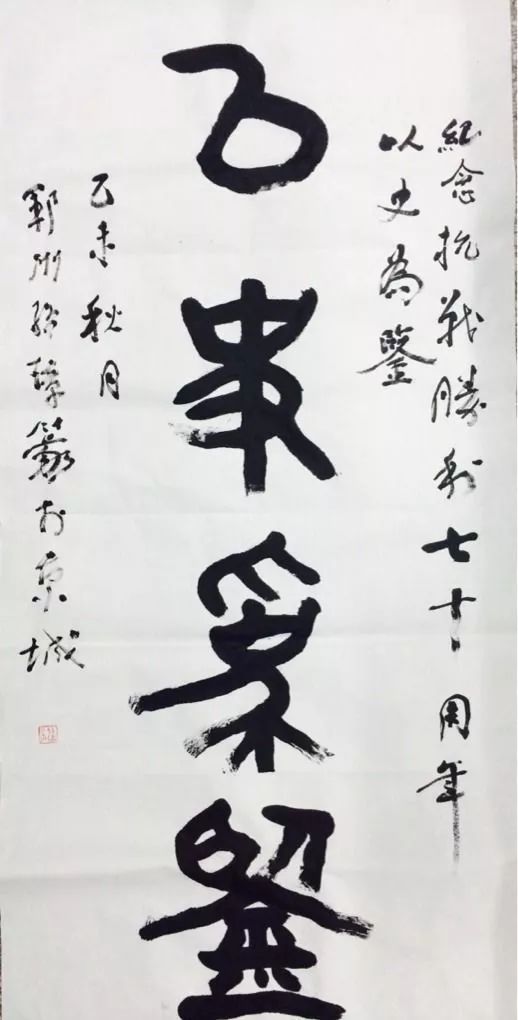 紀念抗戰勝利七十周年
以史為鑒
以史為鑒
乙未秋月
鄆州璋篆於京城